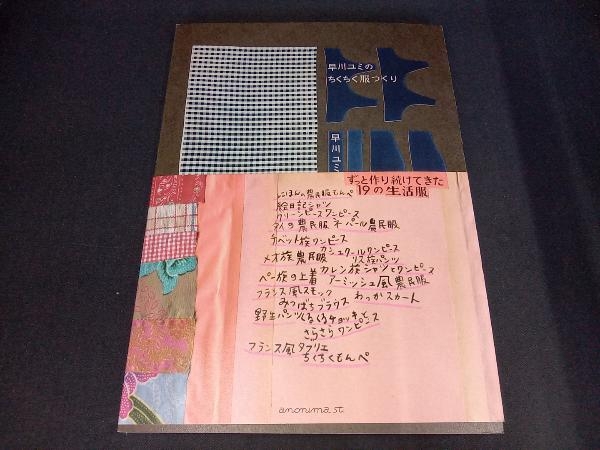 早川ユミの
ちくちく服つくり
早川ユミ
ずっと作り続けてきた
19の生活服
にほんの農民服もんぺ
絵日記シャツ
グリーンピースワンピース
タイの農民服 ネパール農民服
チベット族ワンピース
カシュクールワンピース
メオ族農民服 リス族パンツ
カレン族シャツとワンピース
ペー族の上着 アーミッシュ風農民服
フランス風スモック
みつばちブラウス わっかスカート
野生パンツ くるくるチョッキと
さらさらワンピース
フランス風タブリエ
ちくちくもんぺ
anonima st.